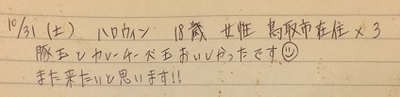 10/31 (土) ハロウィン 18歳 女性 鳥取市在住 × 3
豚玉とカレーチーズ玉おいしかったです☺
また来たいと思います!!